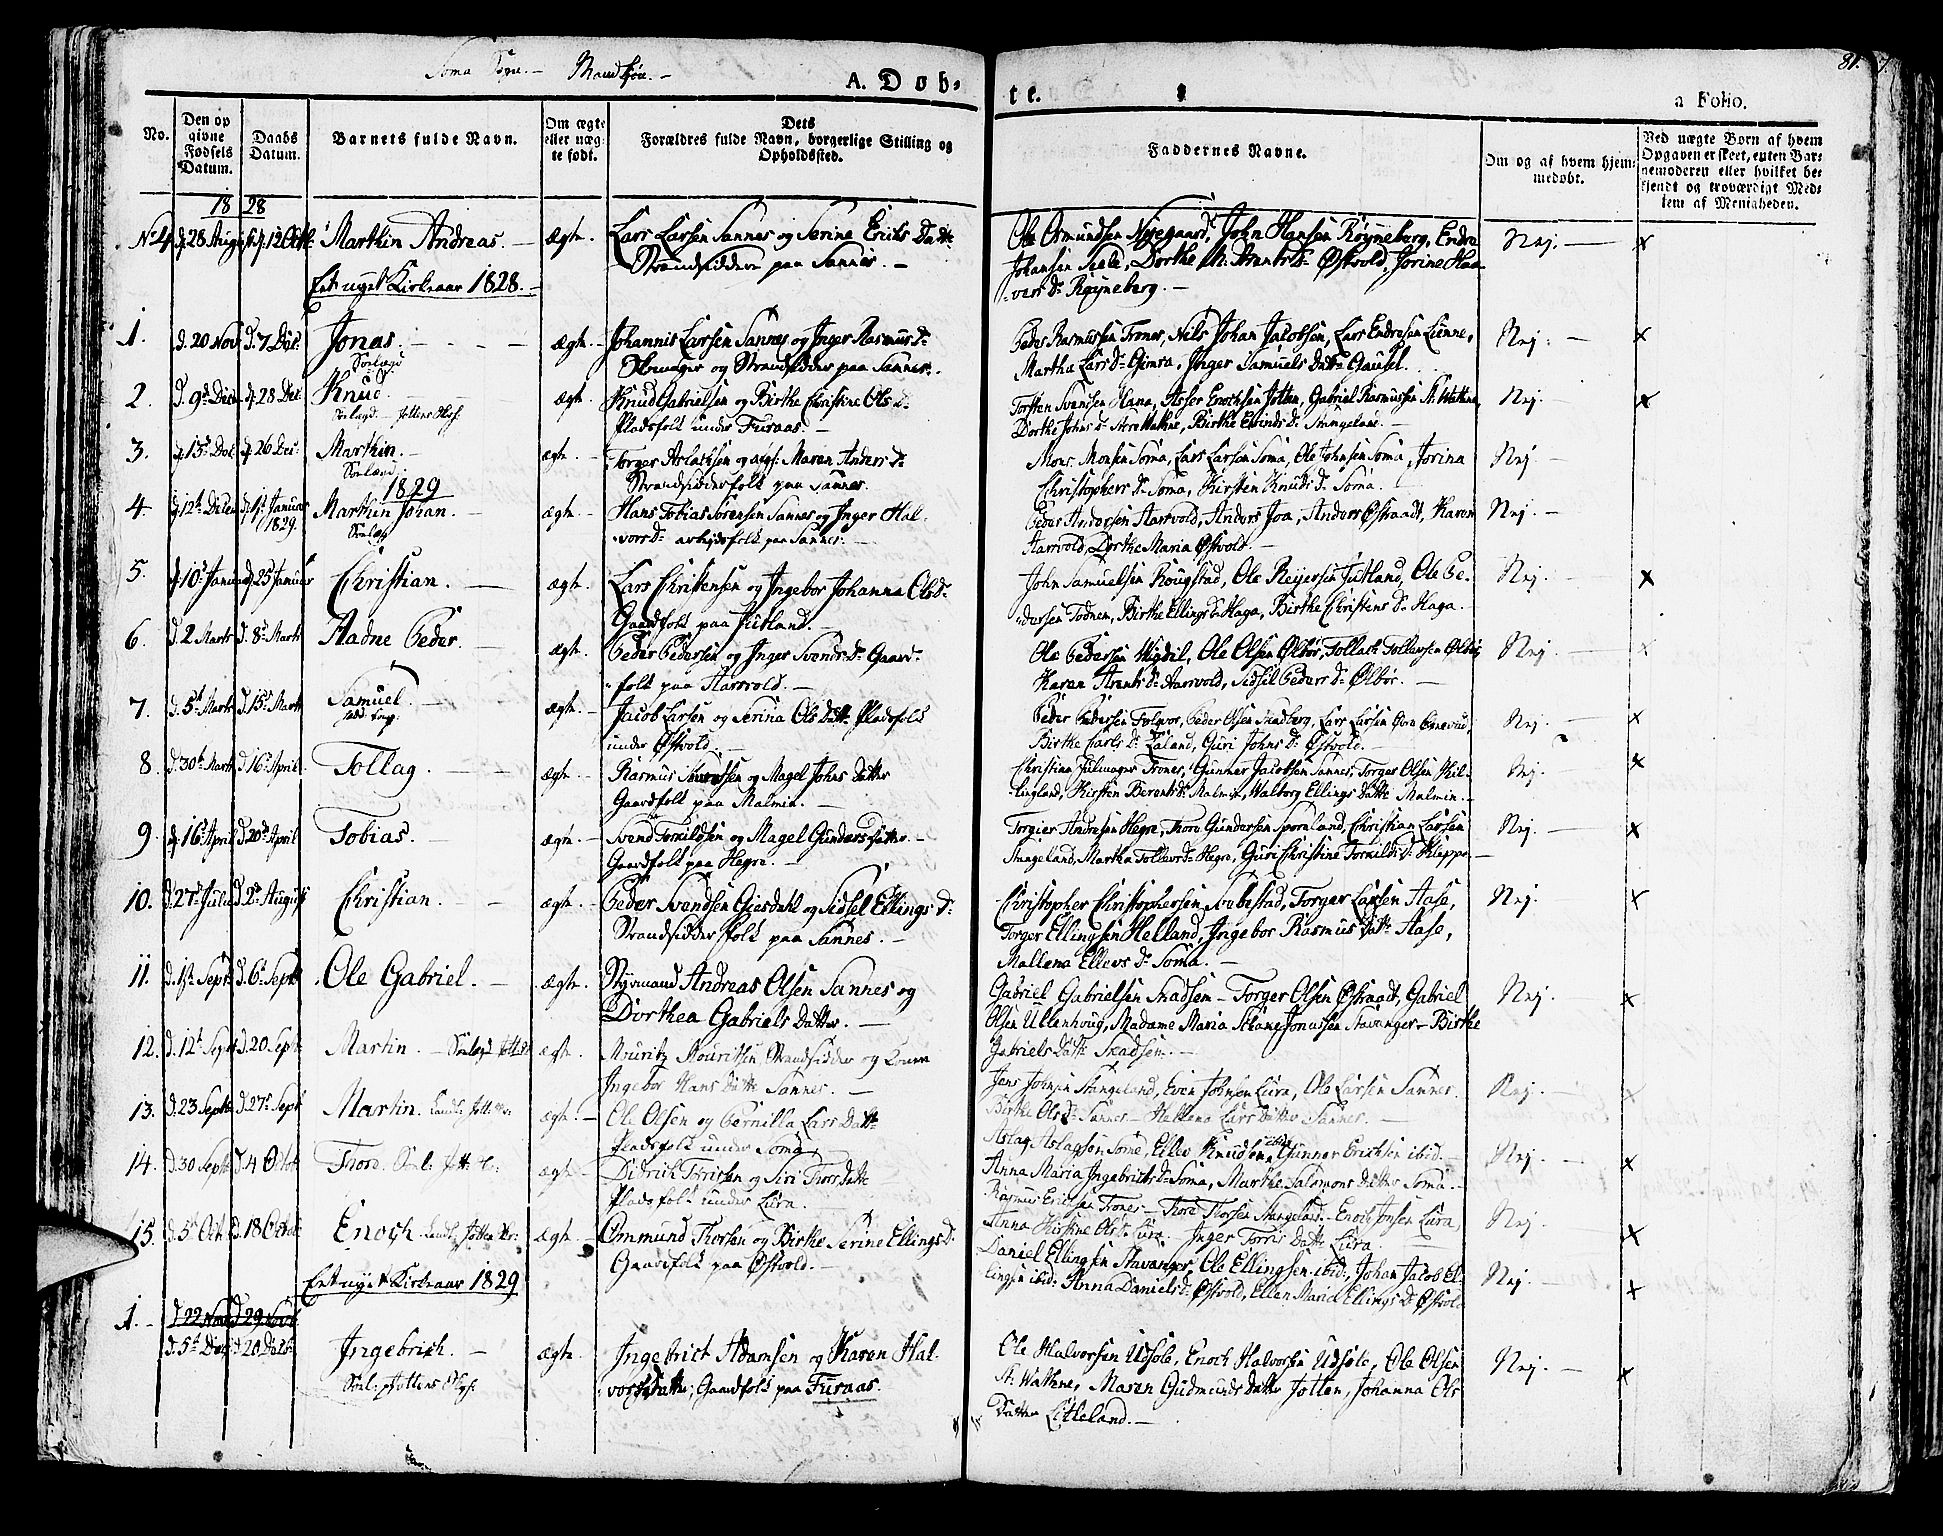 Soma Sogn. — Mandkjön. —
A. Døb-
te.
81.
a Folio.
No.
Den op
givne
Fødsels
Datum.
Daabs
Datum.
Barnets fulde Navn.
Om ægte
eller uæg-
te født.
Dets
Forældres fulde Navn, borgerlige Stilling og
Opholdssted.
Faddernes Navne.
Om og af hvem hjem-
medøbt.
Ved uægte Børn af hvem
Opgaven er skeet, enten Bar-
nemoderen eller hvilket be-
kjendt og troværdigt Med-
lem af Menigheden.
18 28
No 4 d. 28 Augus d. 12 Octbr Marthin Andreas. — ægte. Lars Larsen Sannes og Serine Eriks Datter
Strandsiddere paa Sannes. —
Ole Osmundsen Nyegaard, John Hansen Röyneberg, Endre
Johansen Seele, Dorthe M. Arentsd. Østvold, Jorine Haa-
vars Dr Røyneberg. —
Nej. — x
Endnyet Kirkeaar 1828. —
1. d. 20 Nov d. 7 Dec: Jonas. — ægte. Johannis Larsen Sannes og Inger Rasmus Dr
Skomager og Strandsidder paa Sannes.
Peder Rasmussen Trones, Nils Johan Jacobsen, Lars Endresen Lienne,
Martha Lars Dr Gimra, Inger Samuels Datter Gausel.
Nej. — x
2. d. 9 Decem d. 28 Dec Knud. ægte Knud Gabrielsen og Birthe Christine Ols Dr
Pladsfolk under Furaas. —
Torsten Svendsen Hana, Asser Enochsen Jotten, Gabriel Rasmussen St. Wathne,
Dorthe Johns Dr Store Wathne, Birthe Eivinds Dr Stangeland. —
Nej. — x
3. d. 13 Dec d. 26 Dec: Marthin. — ægte. Torger Aslachsen og Maren Anders Dr
Strandsidderfolk paa Sannes.
Mons Monsen Soma, Lars Larsen Soma, Ole Johnsen Soma, Jorina
Christophers Dr Soma, Kirsten Knuds Dr Soma.
Nej —
1829
4. d. 12 Decem d. 1 Januar
1829. Marthin Johan. — ægte. Hans Tobias Sörensen Sannes og Inger Hal-
vors Dr arbejdsfolk paa Sannes. —
Peder Andersen Aarvold, Anders Joa, Anders Østraadt, Karen
Aarvold, Dorthe Maria Østvold. —
Nej. —
5. d. 10 Januar d. 25 Januar Christian. — ægte. Lars Christensen og Ingebor Johanna Ols Dr
Gaardfolk paa Jutland. —
John Samuelsen Rougstad, Ole Reyersen Jutland, Ole Pe-
dersen Todnem, Birthe Ellings Dr Haga, Birthe Christens Dr Haga.
Nej. — x
6. d. 2 Marts d. 8 Marts Aadne Peder. — ægte. Peder Pedersen og Inger Svends Dr Gaard-
folk paa Aarvold. —
Ole Pedersen Wigdil, Ole Olsen Ølbör, Tollak Tollevsen Ølbör,
Karen Arents Dr Aarvold, Sidsil Peders Dr Ølbör. —
Nej. — x
7. d. 5 Marts d. 15 Marts Samuel. ægte. Jacob Larsen og Serina Ols Datter Pladsfolk
under Østvold. —
Peder Pedersen Folqvor, Peder Olsen Skadberg, Lars Larsen
Birthe Carls Dr Zaland, Guri Johns Dr Østvold. —
Nej. — x
8. d. 30 Marts d. 16 April. Tollag. — ægte. Rasmus og Magel Johns datter
Gaardfolk paa Malmin. —
Christian Julmager Trones, Gunner Jacobsen Sannes, Torger Olsen Kil-
lingland, Kirsten Berents Dr Malmin, Walborg Ellings Datter Malmin. —
Nej. x
9. d. 16 April d. 20 April Tobias. — ægte. — Svend Torkildsen og Magel Gunders Datter. —
Gaardfolk paa Hegre. —
Torgier Andresen Hegre, Thore Gundersen Sporaland, Christian Larsen
Stangeland, Martha Tollevs Dr Hegre, Guri Christine Torkilds Dr Kleppe —
Nej. — x
10. d. 27 Julii d. 2 August Christian. — ægte. Peder Svendsen Giesdahl og Sidsel Ellings Dr
Strandsidderfolk paa Sannes. —
Christopher Christophersen, Torger Larsen Aase,
Torger Ellingsen Helland, Ingebor Rasmus Datter Aase,
Mallena Ellevs Dr Soma. —
Nej. x
11. d. 1 Sept d. 6 Sept Ole Gabriel. — ægte. Styrmand Andreas Olsen Sannes og
Dorthea Gabriels Datter. —
Gabriel Gabrielsen Skadsem — Torger Olsen Østraadt, Gabriel
Olsen Ullenhoug, Madame Maria Jonassen Stavanger — Birthe
Gabriels Datter Skadsem. —
Nej. x
12. d. 12 Sept d. 20 Sept Martin. — ægte. Mouritz Mouritsen Strandsidder og Konen
Ingebor Hans Datter Sannes. —
Jens Johnsen Stangeland, Even Johnsen Lura, Ole Larsen Sannes.
Birthe Ols Dr Sannes — Lars Datter Sannes. —
Nej. x
13. d. 23 Septb d. 27 Sept Martin. ægte. — Ole Olsen og Pernilla Lars Datter
Pladsfolk under Soma
Aslag Aslagsen Some, Ellev Knudsen ibid Gunner Erichsen ibid. —
Anna Maria Ingebrichts Dr Soma, Marthe Salomons Datter Soma. —
Nej. — x
14. d. 30 Septb d. 4 Octob Thore. ægte Didrich Torrisen og Siri Thors Datter
Pladsfolk under Lura. —
Rasmus Erichsen Trones — Thore Thorsen Stangeland. — Enoch Jonsen Lura,
Anna Kirstine Ols Dr Lura. Inger Torris Datter Lura. —
Nej. x
15. d. 5 Oct d. 18 Octob Enoch. ægte. Ommund Thorsen og Birthe Serine Ellings Dr
Gaardfolk paa Østvold. —
Daniel Ellingsen Stavanger, Ole Ellingsen ibid:, Johan Jacob El-
lingsen ibid: Anna Daniels Dr Østvold, Ellen Maria Ellings Dr Østvold
Nej. — x
Endnyet Kirkeaar 1829
1. — d 22 Nov d 29 Novb
d. 5 Dec d 20 Decbr Ingebrich. — ægte. Ingebrict Adamsen og Karen Hal-
vors datter, Gaardfolk paa Furaas.
Ole Halvorsen Udsole, Enoch Halvorsen Udsole, Ole Olsen
St. Wathne, Maren Gudmunds datter Jotten, Johanna Ols
Datter Litleland. —
Nej. — x